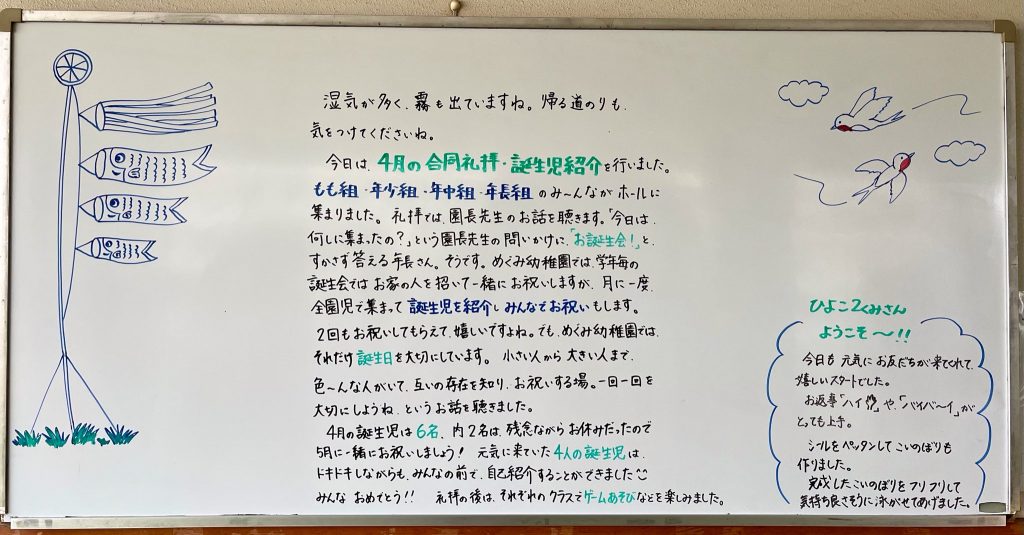 湿気が多く、霧も出ていますね。帰る道のりも、
気をつけてくださいね。
今日は、4月の合同礼拝・誕生児紹介を行いました。
もも組・年少組・年中組・年長組のみ〜んながホールに
集まりました。礼拝では、園長先生のお話を聴きます。「今日は、
何しに集まったの?」という園長先生の問いかけに、「お誕生会!」と、
すかさず答える年長さん。そうです。めぐみ幼稚園では、学年毎の
誕生会ではお家の人を招いて一緒にお祝いしますが、月に一度、
全園児で集まって誕生児を紹介しみんなでお祝いもします。
2回もお祝いしてもらえて、嬉しいですよね。でも、めぐみ幼稚園では、
それだけ誕生日を大切にしています。小さい人から大きい人まで、
色〜んな人がいて、互いの存在を知り、お祝いする場。一回一回を
大切にしようね、というお話を聴きました。
4月の誕生児は6名、内2名は、残念ながらお休みだったので
5月に一緒にお祝いしましょう!元気に来ていた4人の誕生児は、
ドキドキしながらも、みんなの前で、自己紹介することができました
みんなおめでとう!!礼拝の後は、それぞれのクラスでゲームあそびなどを楽しみました。
ひよこ2くみさん
ようこそ〜!!
今日も元気にお友だちが来てくれて、
嬉しいスタートでした。
お返事「ハイ」や、「バイバ〜イ」が
とっても上手。
シールをペッタンしてこいのぼりも
作りました。
完成したこいのぼりをフリフリして
気持ち良さそうに泳がせてあげました。